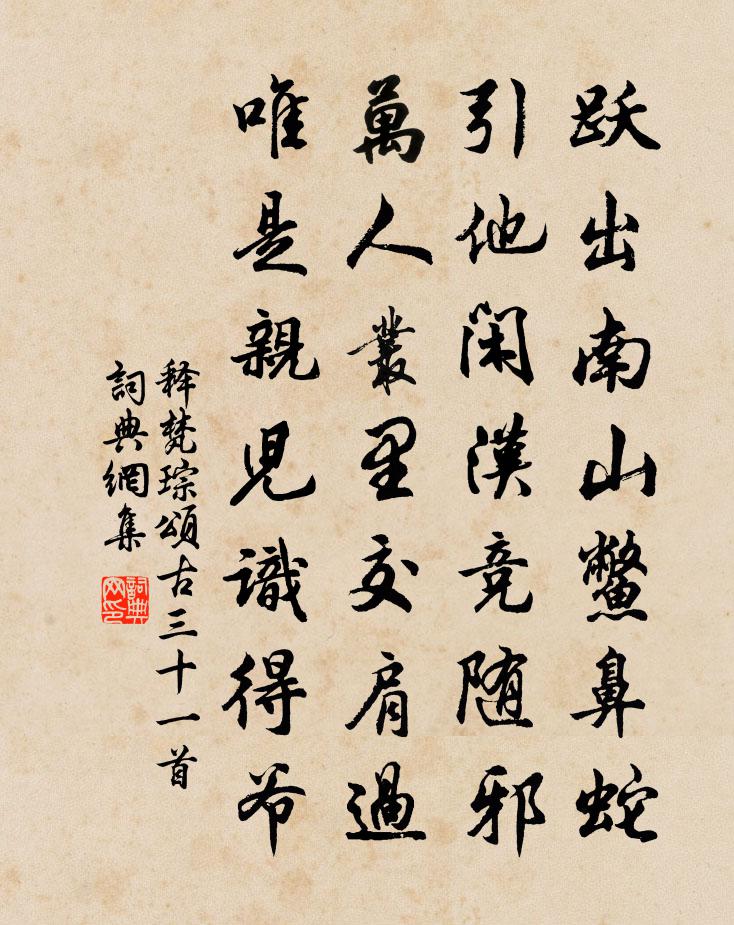 跃出南山鳖鼻蛇
引他闲汉竞随邪
萬人叢里交肩過
唯是親児識得爷
释梵琮頌古三十一首
詞典網集
詞典網印